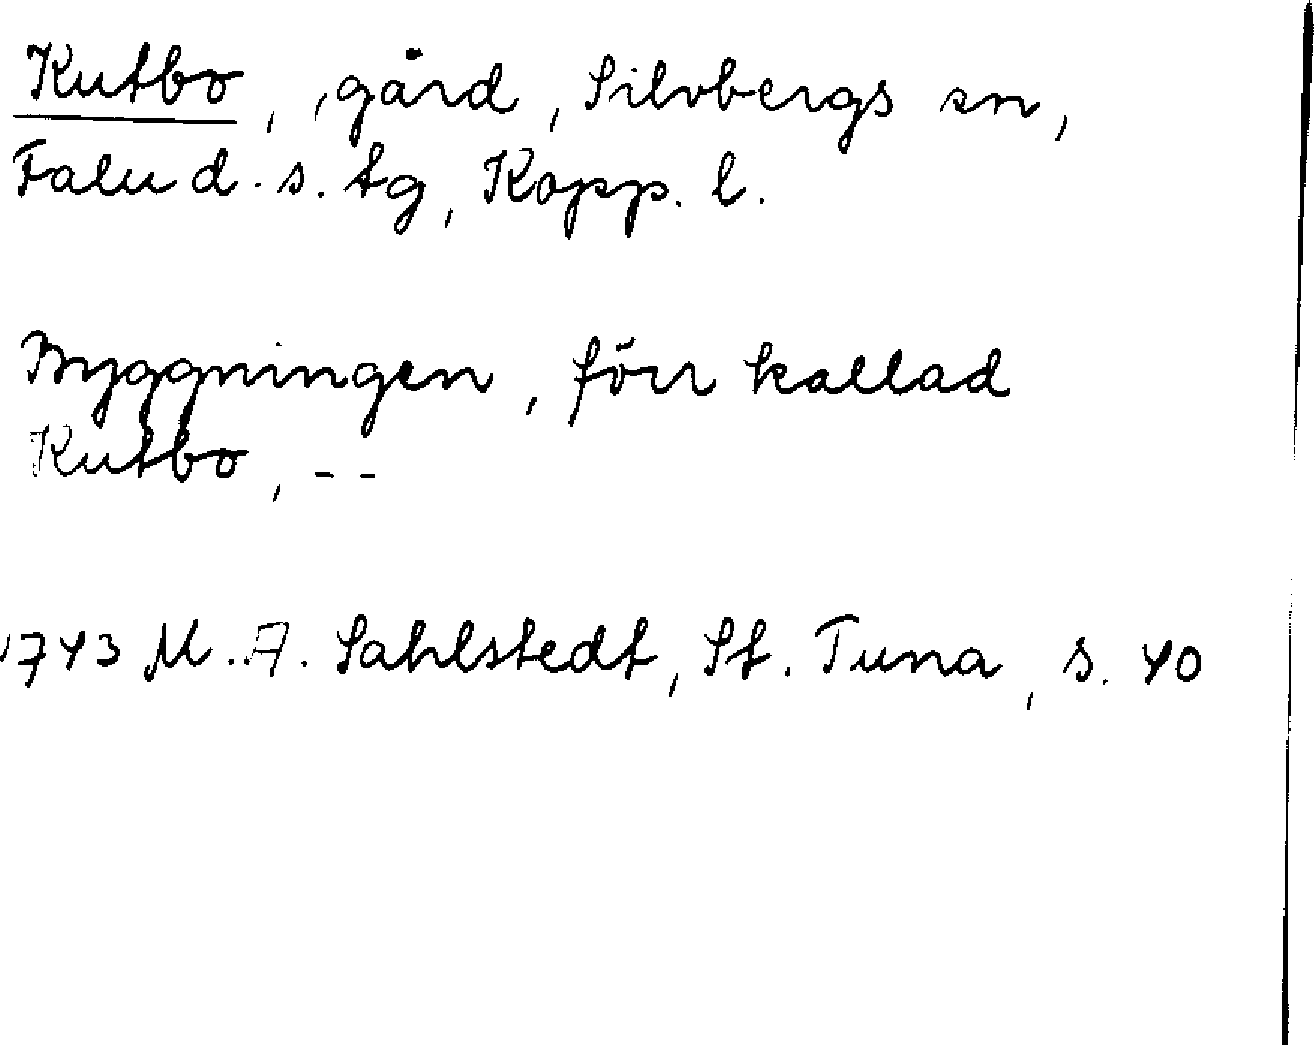 Kutbo, gård, Silvbergs sn,
Falu d. s. tg, Kopp. l.
Byggningen, förr kallad
Kutbo, --
1743 M. A. Sahlstedt, St. Tuna, s. 40